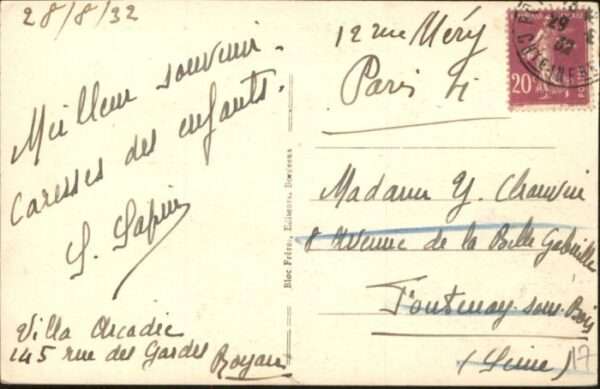 28/8/32
Meilleur souvenir.
Caresses des enfants.
Villa Arcadie
145 rue des Gardes Royan
Bloc Frères, Editeurs, Bordeaux
12 rue Méry
Paris
29
32
20
Madame Y. Chauvin
8 Avenue de la Belle Gabrielle
Fontenay-sous-Bois
(Seine)
17